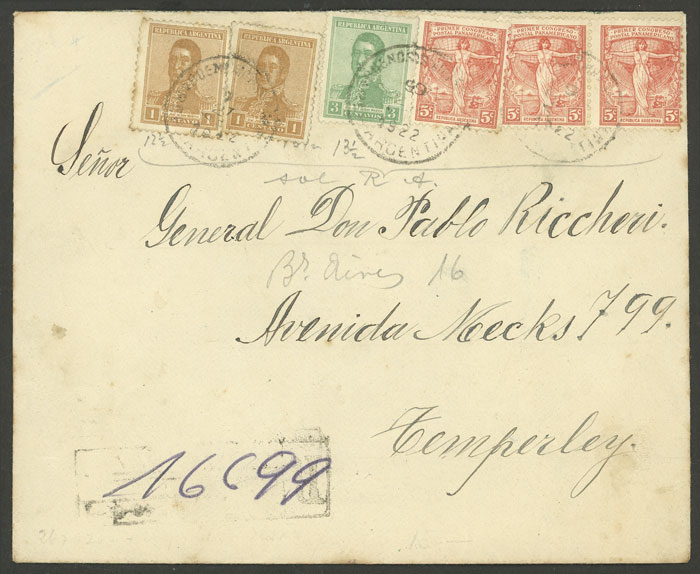 REPUBLICA ARGENTINA
1 1
CENTAVOS
REPUBLICA ARGENTINA
1 1
CENTAVOS
REPUBLICA ARGENTINA
3 3
CENTAVOS
PRIMER CONGRESO
POSTAL PANAMERICANO
5c 5c
REPUBLICA ARGENTINA
PRIMER CONGRESO
POSTAL PANAMERICANO
5c 5c
REPUBLICA ARGENTINA
PRIMER CONGRESO
POSTAL PANAMERICANO
5c 5c
REPUBLICA ARGENTINA
1922
ARGENTINA
13½ 13½
Señor
sol R. A.
General Don Pablo Riccheri.
Bs. Aires 16
Avenida Meeks 799.
Temperley.
16699
R